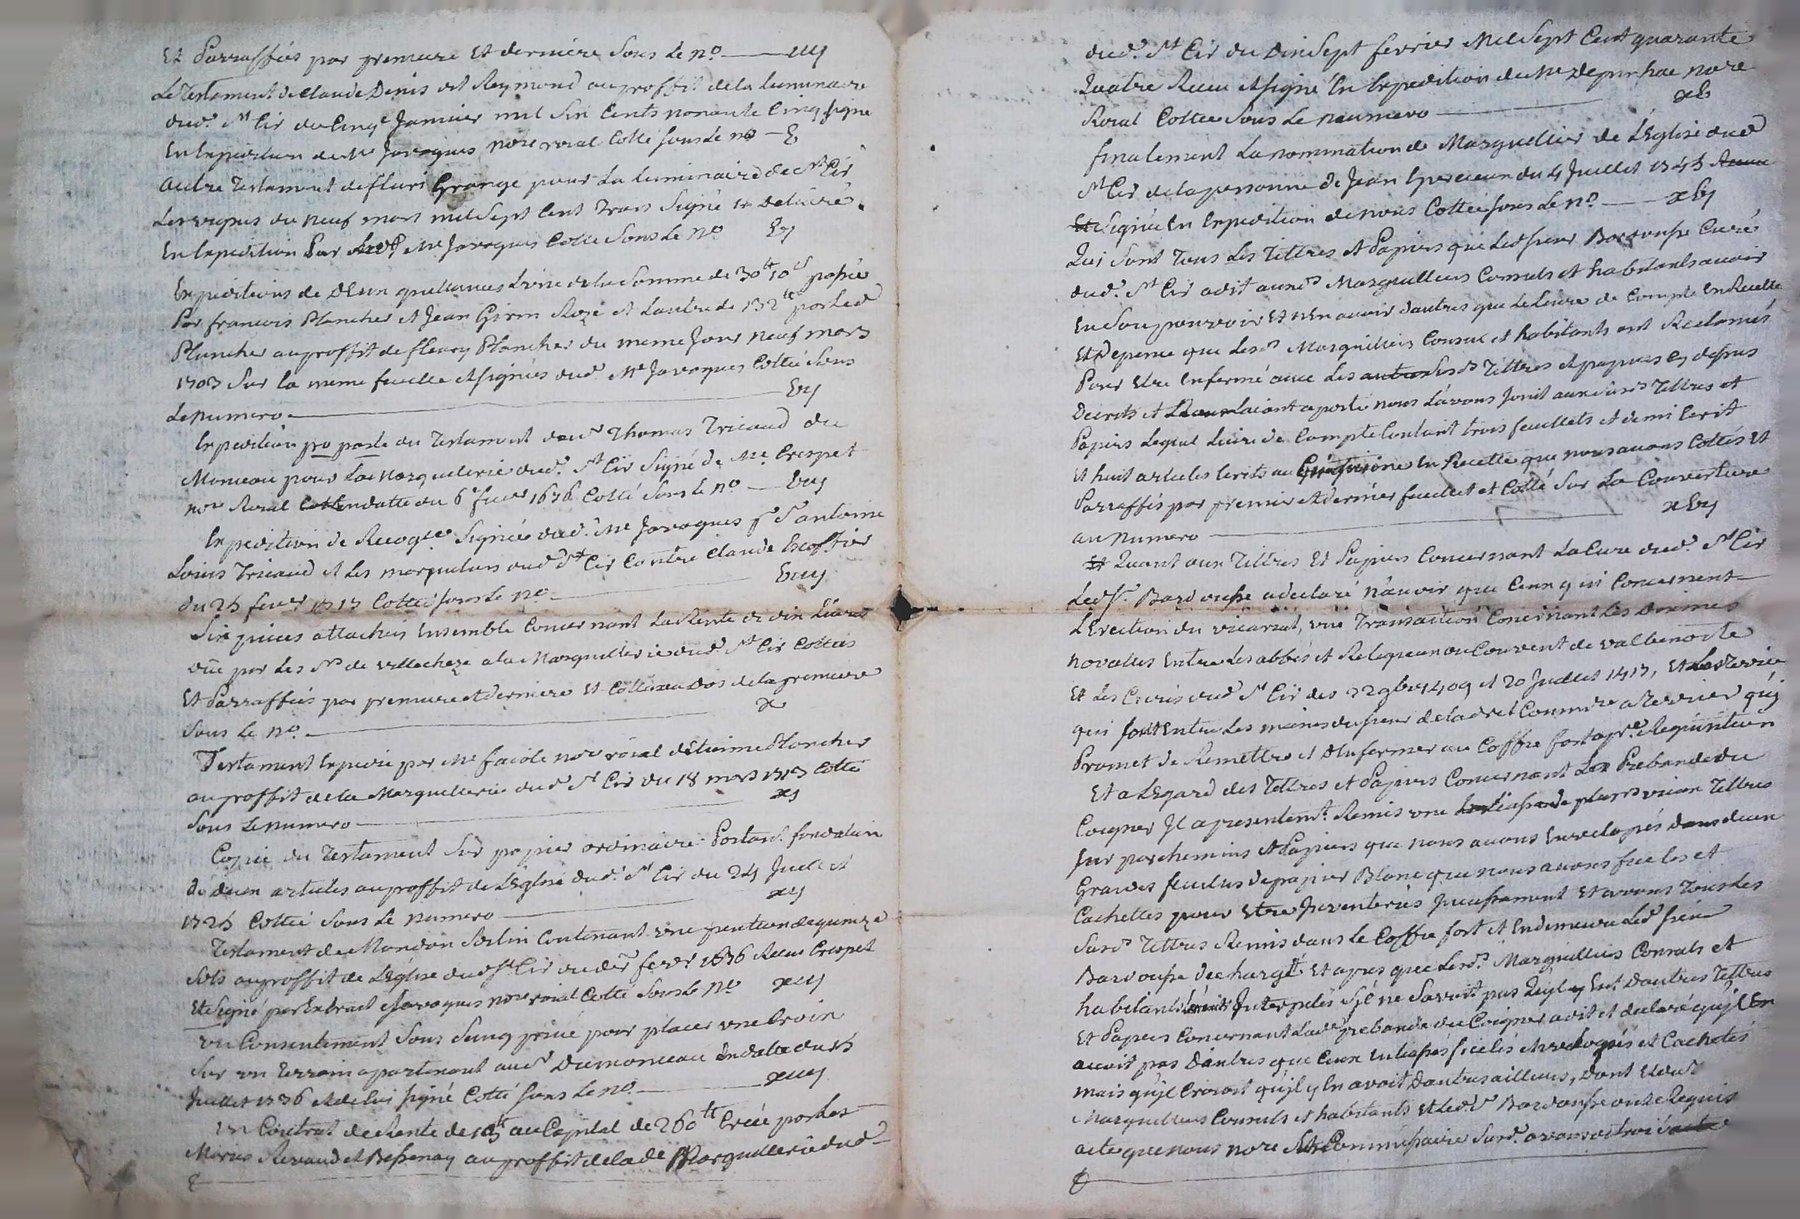 Et Parraffiés par premiere Et derniere Sous Le no. iiij
Le Testament de Claude Denis dit Reymond au proffit de la Luminaire
dud. St Cir du Cinqe Janvier mil Six Cents nonante Cinq signé
En Expedition de Me Javogues nore roial Cotté sous Le no V
autre Testament de fleuri Grange pour La Luminaire de St Cir
Les vignes du neuf mars mil Sept Cent Trois Signé et delivré
En Expedition Par Me Javogues Cotté Sous Le no Vj
Expeditions de Deux quittances L'une de la Somme de 30tt 10s passée
Par francois Plancher et Jean Girin Roze et L'autre de 132tt par Led
Plancher au proffit de fleury Plancher du meme Jour neuf mars
1703 Sur la meme feuille et signées dud. Me Javogues Cotté Sous
Le numero Vij
Expedition pro parte du Testament de Thomas Tricaud du
Monceau pour La Marguelerie dud. St Cir Signé de Me Crespet
nore Roial en datte du 6e fevr 1636 Cotté Sous Le no Viij
Expedition de Recogce Signée dud. Me Javogues pr Sr antoine
Louis Tricaud et Les marguliers dud St Cir Contre Claude Escoffier
du 25 fevr 1713 Cottée sous Le no Viiij
Six pieces attachées Ensemble Concernant La Rente de dix Livres
düe par Les Srs de villecheze a la Marguillerie dud. St Cir Cottées
Et Parraffiés par premiere et derniere Et Cottée au Dos de la premiere
Sous Le no. x
Testament Expedié par Me faiole nore roial d'Etienne Plancher
au proffit de la Marguillerie dud. St Cir du 18 mars 1713 Cotté
Sous Le numero xj
Copie du Testament Sur papier ordinaire Portant fondation
de deux articles au proffit de L'Eglise dud. St Cir du 24 Juillet
1725 Cotté Sous Le numero xij
Testament de Mandon Serlin Contenant une pention de quinze
Sols au proffit de L'Eglise dud. St Cir du fevr 1636 Recu Crespet
Et Signé par Extrait Javogues nore roial Cotté Sous Le No xiij
un Consentement Sous Seing privé pour placer une Croix
Sur un terrain apartenant au Sr Dumonceau En datte du 15
Juillet 1736 et de lui signé Cotté sous Le no xiiij
un Contrat de Rente de au Capital de 260tt Creé par Les
Maries Revaud et Bessenay au proffit de la de Marguillerie dud
dud. St Cir du Dixsept fevrier Mil Sept Cent quarante
Quatre Recu et signé En Expedition de Me nore
Roial Cotté Sous Le numero xv
finalement La nomination de Marguellier de L'Eglise dud
St Cir de la personne de Jean du 4 Juillet 1745
Signée En Expedition de nous Cottée sous Le no. xvj
Qui Sont Tous Les Tittres et Papiers que Led sieur Bardousse Curé
dud. St Cir a dit auxds Marguilliers Consuls et habitants avoir
En Son pouvoir Et n'En avoir d'autres que Le Livre de Compte En Recette
Et Depence que Lesds Marguilliers Consuls et habitants ont Reclamés
Pour Etre Enfermé avec Les Tittres et papiers cy dessus
Decrits et L'aiant aporté nous L'avons Joint auxdits Tittres et
Papiers Lequel Livre de Compte Contient trois feuillets et demi Ecrit
Et huit articles Ecrits au En Recette que nous avons Cottés Et
Parraffés par premier et dernier feuillet et Cotté Sur La Couverture
au numero xvij
Quant aux Tittres Et Papiers Concernant La Cure dud. St Cir
Led Sr. Bardousse a declaré n'avoir que Ceux qui Concernent
L'Erection du vicariat, une Transaction Concernant Les Dixmes
novalles Entre Les abbés et Religieux du Couvent de valbenoite
Et Les Curés dud. St Cir des 22 9bre 1409 et 20 Juillet 1413, Et Le Terrier
qui sont Entre Les mains du sieur Commre a Terrier qu'il
Promet de Remettre et d'Enfermer au Coffre fort apre. Requisition
Et a L'Egard des Tittres et Papiers Concernant La Prebande du
Coigner Il a presentemt Remis une Liasse de plusrs vieux Tittres
Sur parchemins et Papiers que nous avons Envelopés deux
Grandes feuilles de papier Blanc que nous avons ficelés et
Cachettés pour Etre Inventoriés Incessament Et avons Tous Les
Susds Tittres Remis dans Le Coffre fort et En demeure Led sieur
Bardousse dechargé Et apres que Lesds Marguilliers Consuls et
habitants Interpelés S'il ne Savoit pas qu'il y Eut d'autres Tittres
Et Papiers Concernant Lade prebande du Coigner a dit et declaré qu'il En
avoit pas d'autres que Ceux En liasses ficelés et Cachetés
mais qu'il Croioit qu'il y En avoit D'autres ailleurs, Dont
Marguilliers Consuls et habitants Et Led Sr Bardousse ont Requis
acte que nous nore Commissaire Susd. avons octroié